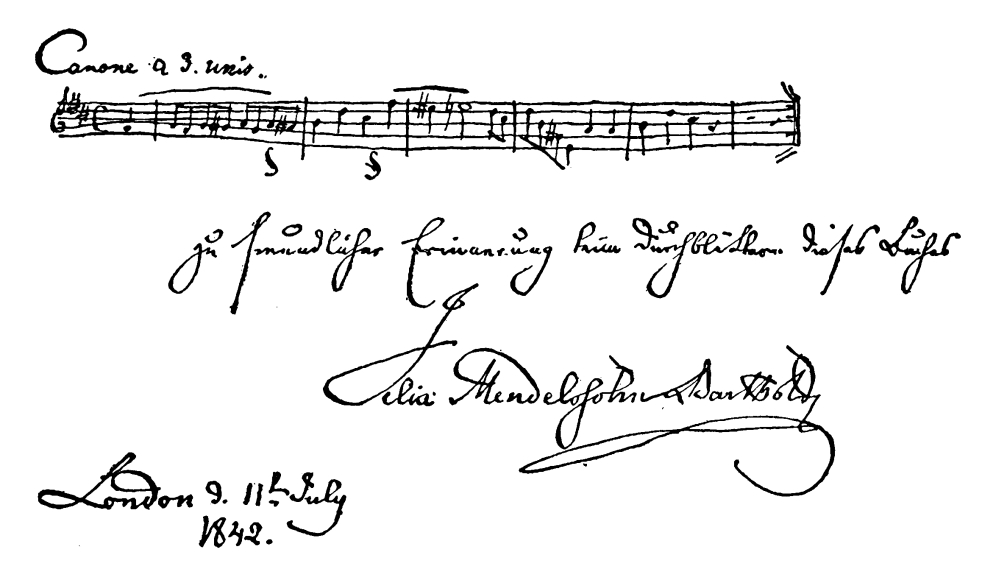 Canone a 3. unis..
zu freundlicher Erinnerung beim Durchblättern dieses Buches
Felix Mendelssohn Bartholdy
London d. 11t July
1842.